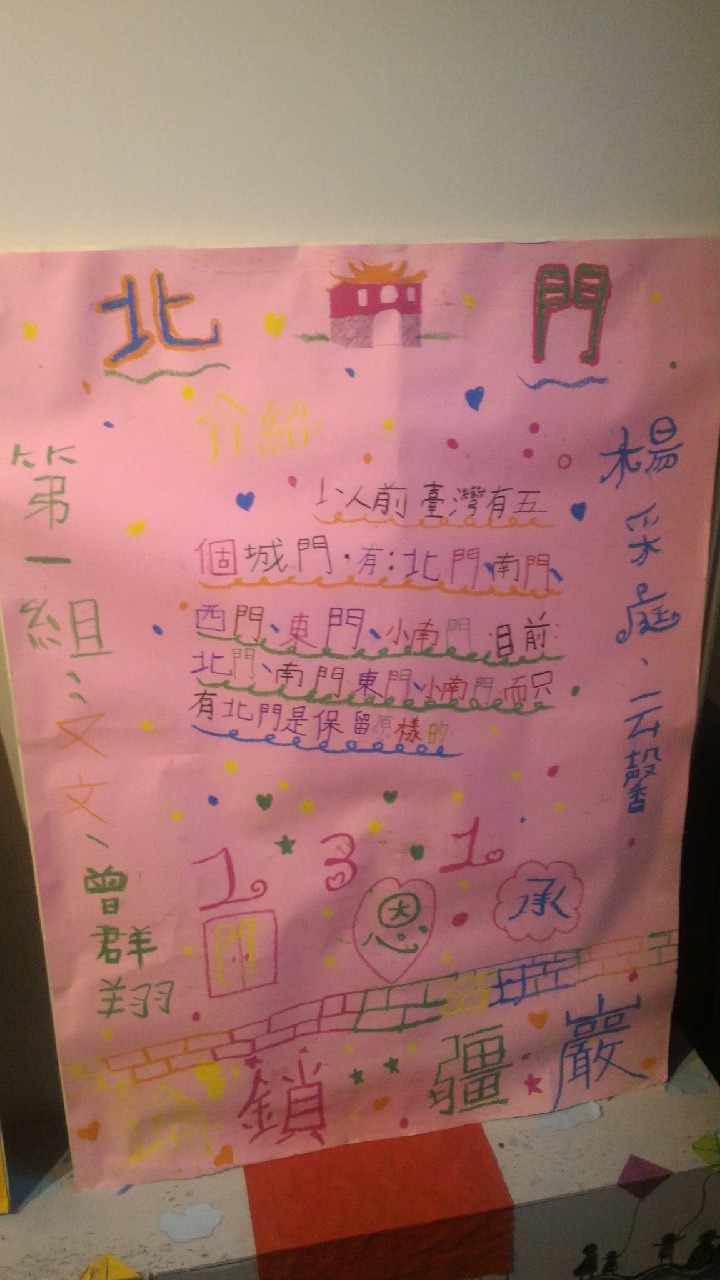 北門
介紹:
以前臺灣有五
個城門,有:北門、南門、
西門、東門、小南門,目前
北門、南門、東門、小南門而只
有北門是保留原樣的
第一組:文文、曾群翔
楊采庭、云馨香
131
門恩承
鎖疆巖